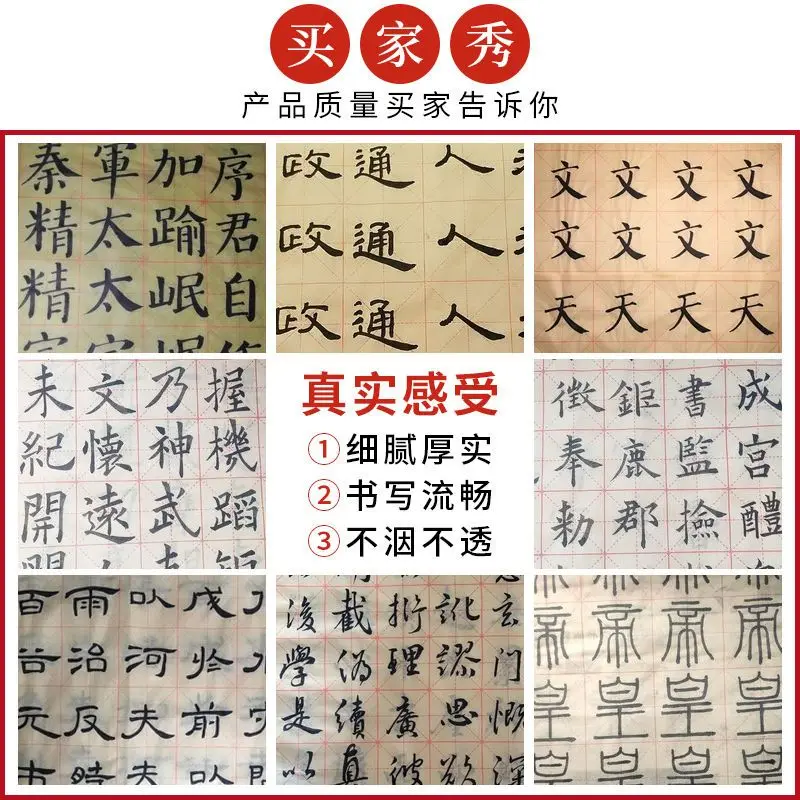 买家秀
产品质量买家告诉你
秦軍加序
精太踰君
精太岷自
政通人
政通人
政通人
文文文文
文文文文
天天天天
未文乃握
紀懷神機
開遠武蹈
真实感受
①细腻厚实
②书写流畅
③不洇不透
徵鉅書成
奉鹿監宮
勅郡撿醴
百雨以戊
谷治河於
元反夫前
市時夫以
後截衍訛玄
學偽理謬門
是續廣思慨
以真彼欲深
帝帝帝
帝帝帝
皇皇皇
皇皇皇